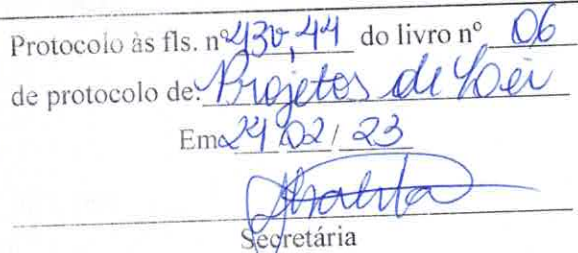 Protocolo às fls. nº 43v, 44 do livro nº 06
de protocolo de: Projetos de Lei
Em 24/02/23
Secretária